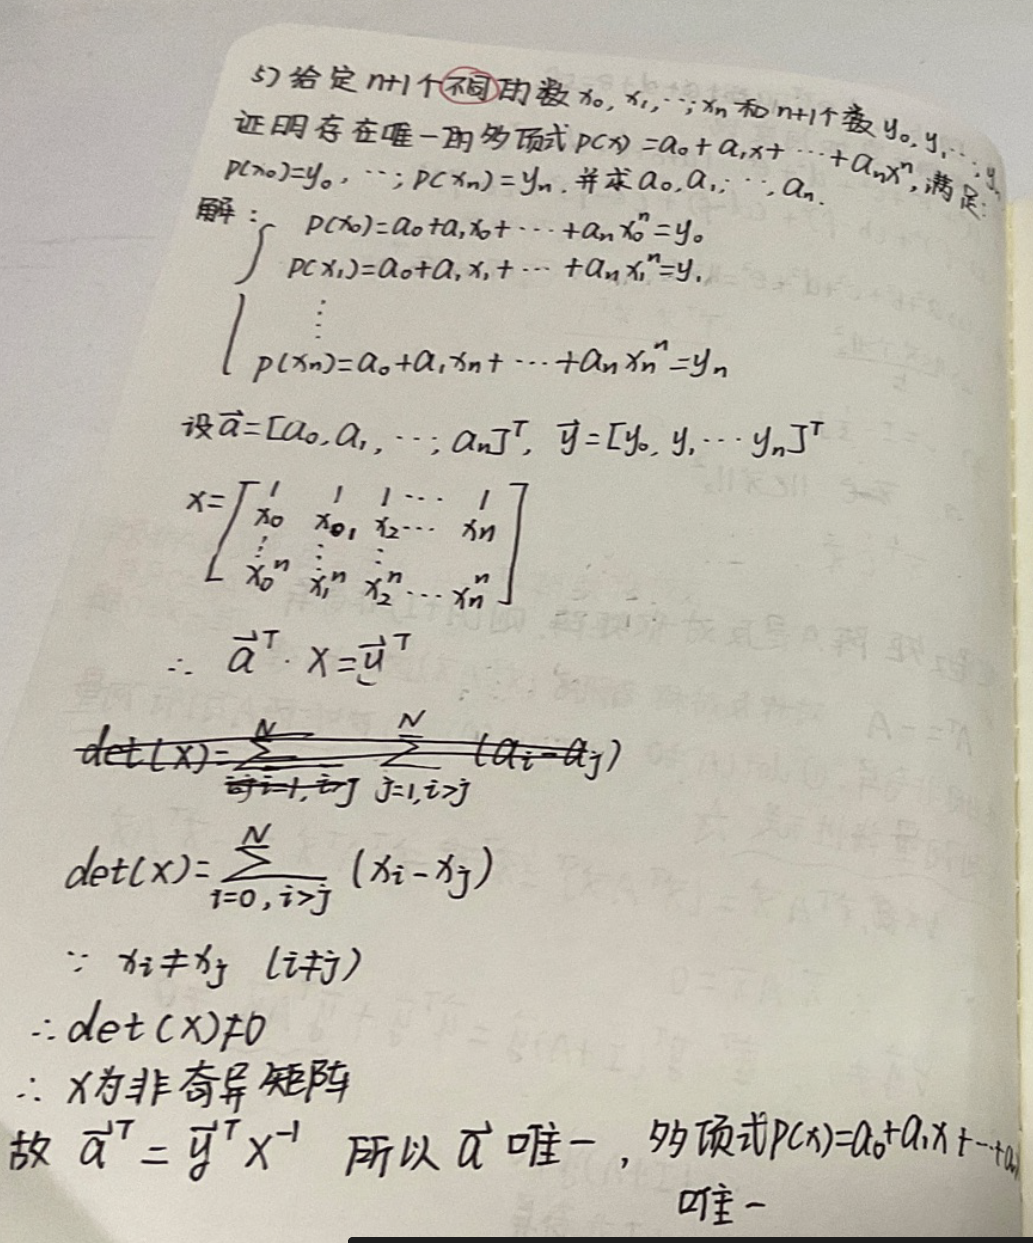 5) 给定 n+1个不同的数 x₀, x₁, …, xₙ 和 n+1个数 y₀, y₁, …, yₙ
证明存在唯一的多项式 P(x) = a₀ + a₁x + ⋯ + aₙxⁿ, 满足:
P(x₀)=y₀, …, P(xₙ)=yₙ. 并求 a₀, a₁, …, aₙ.
解: P(x₀)=a₀+a₁x₀+⋯+aₙx₀ⁿ=y₀
P(x₁)=a₀+a₁x₁+⋯+aₙx₁ⁿ=y₁
⋮
P(xₙ)=a₀+a₁xₙ+⋯+aₙxₙⁿ=yₙ
设 a⃗=[a₀, a₁, …, aₙ]ᵀ, y⃗=[y₀, y₁ ⋯ yₙ]ᵀ
x=[1 1 1 ⋯ 1
x₀ x₀₁ x₂ ⋯ xₙ
⋮ ⋮ ⋮
x₀ⁿ x₁ⁿ x₂ⁿ ⋯ xₙⁿ]
∴ a⃗ᵀ · X = y⃗ᵀ
det(x)= Σ Σ (aᵢ-aⱼ)
N N
i=1, i>j j=1, i>j
det(x)= Σ (xᵢ-xⱼ)
N
i=0, i>j
∵ xᵢ≠xⱼ (i≠j)
∴ det(x)≠0
∴ X为非奇异矩阵
故 a⃗ᵀ = y⃗ᵀ X⁻¹ 所以 a⃗ 唯一, 多项式P(x)=a₀+a₁x+⋯+aₙ
唯一